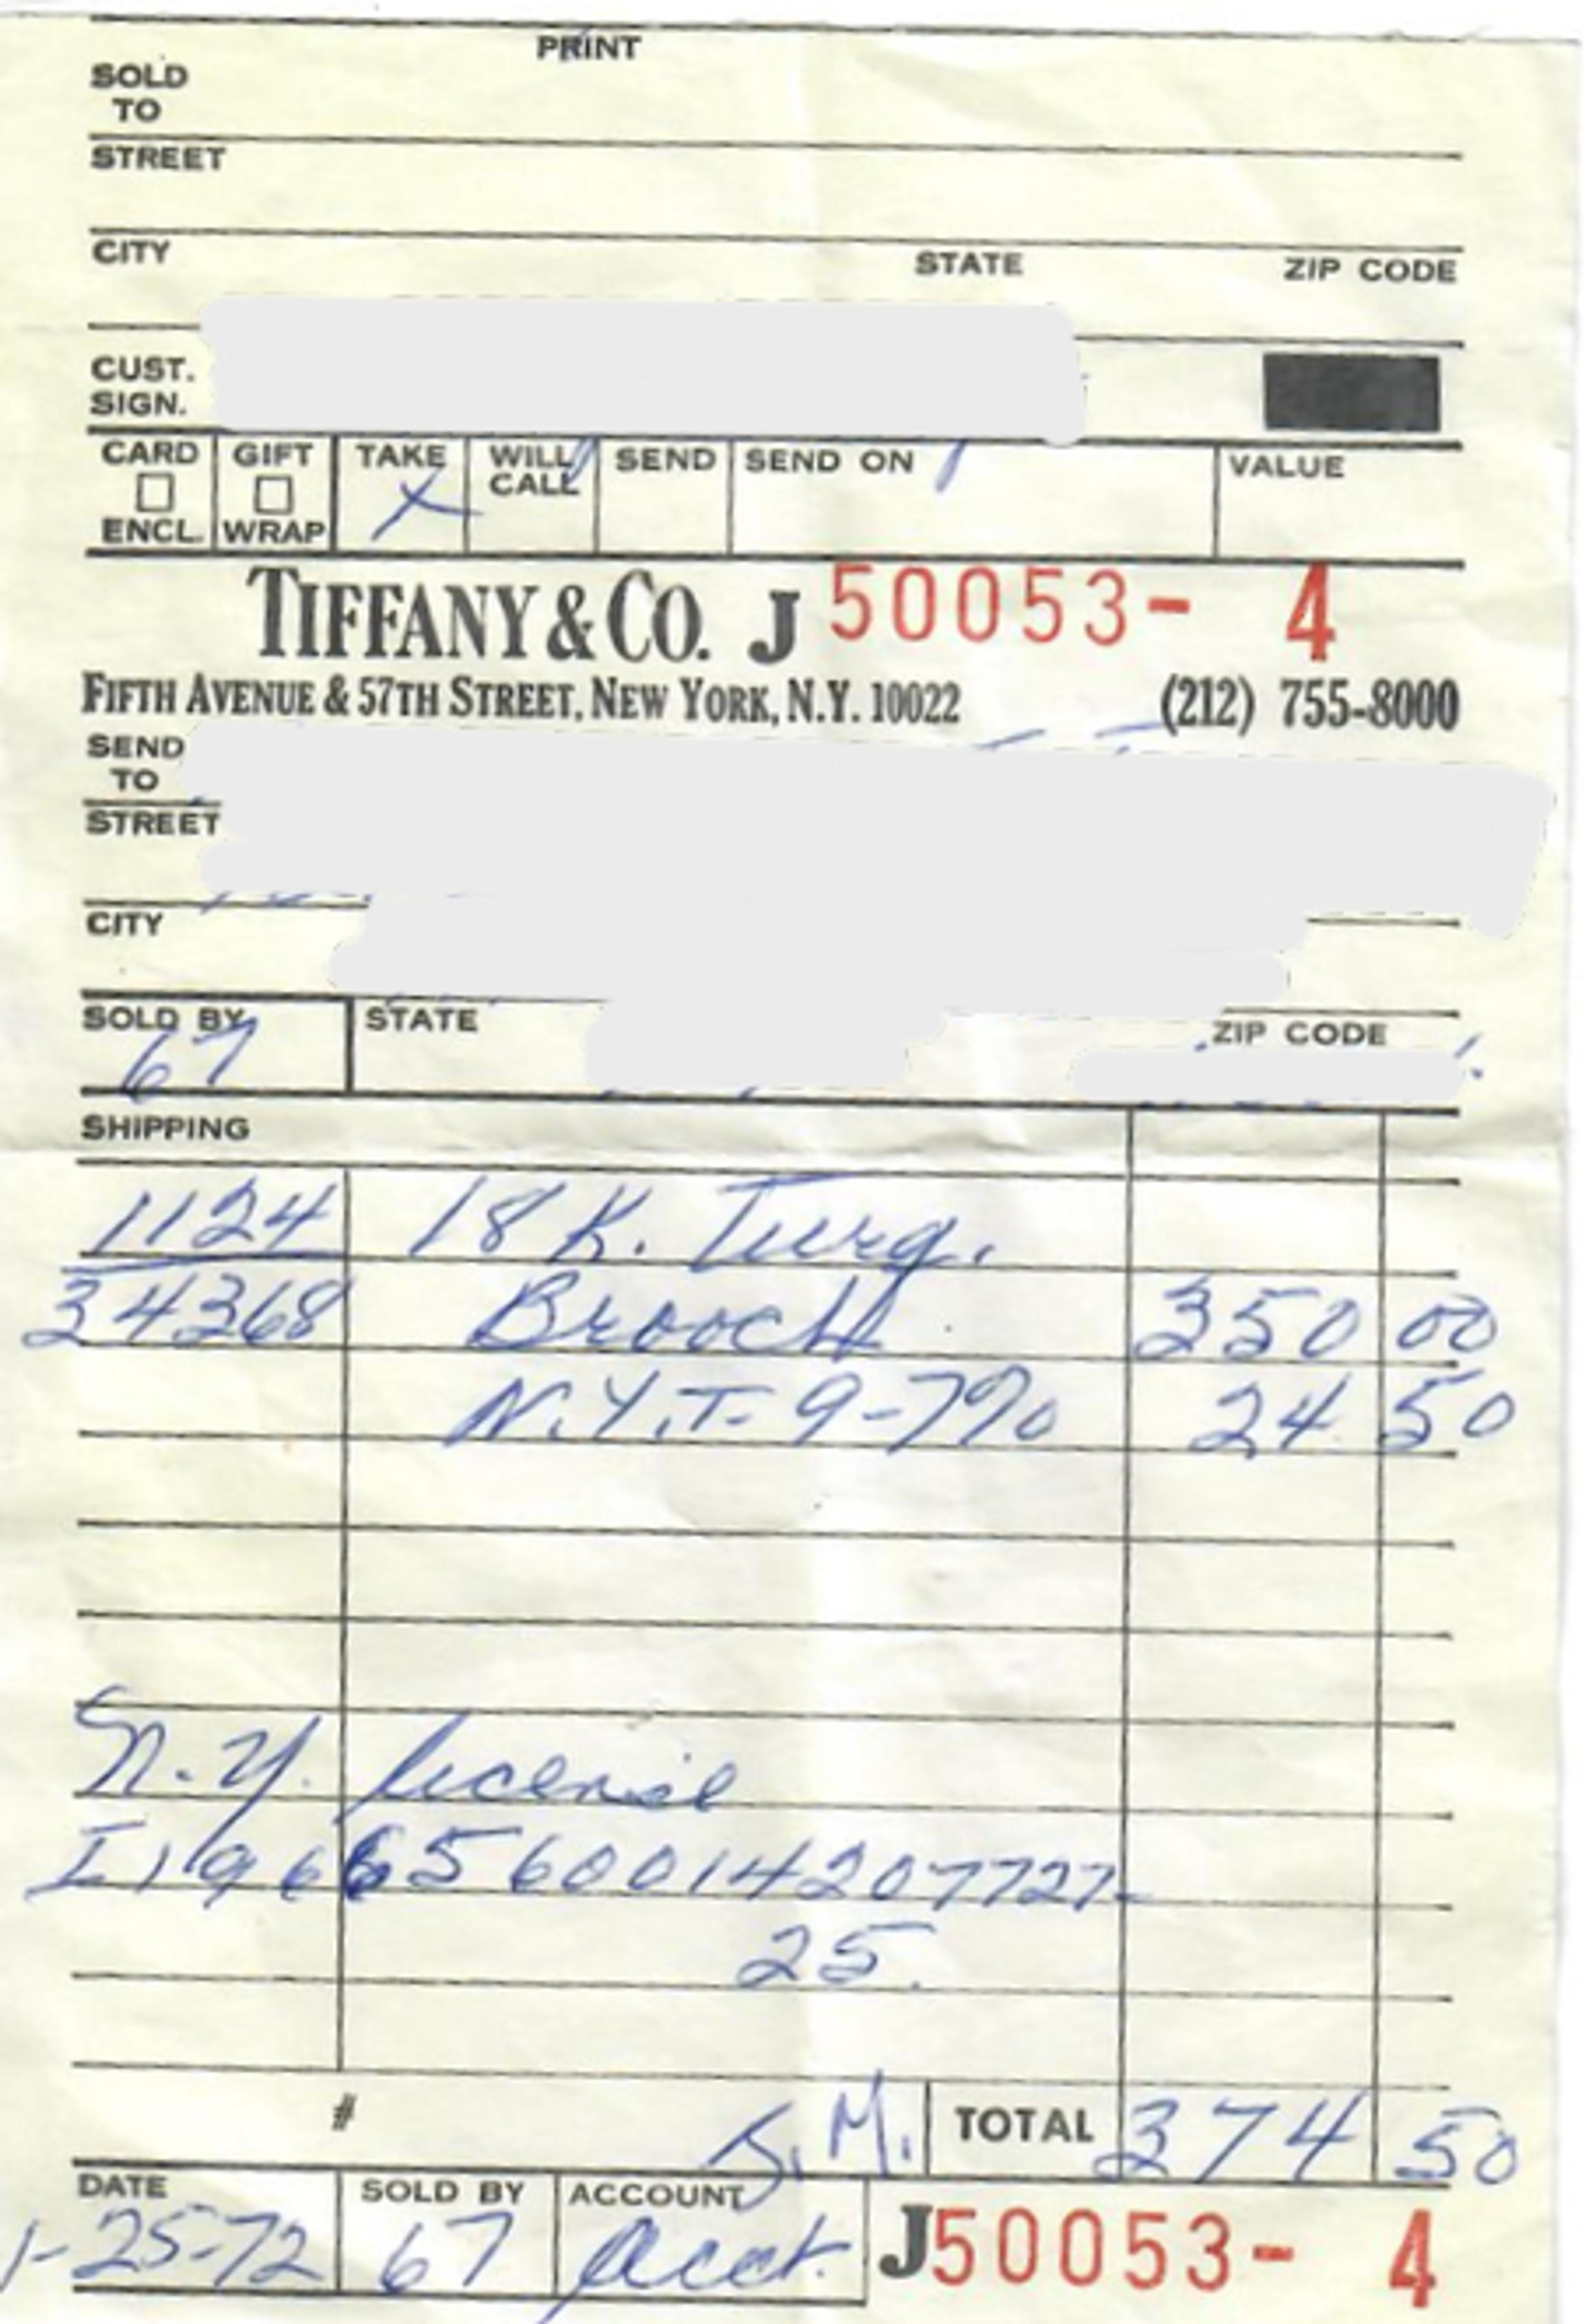 PRINT
SOLD TO
STREET
CITY STATE ZIP CODE
CUST. SIGN.
CARD ENCL. GIFT WRAP TAKE X WILL CALL SEND SEND ON VALUE
TIFFANY & CO. J 50053- 4
FIFTH AVENUE & 57TH STREET, NEW YORK, N.Y. 10022 (212) 755-8000
SEND TO
STREET
CITY
SOLD BY 67 STATE ZIP CODE
SHIPPING
1124 18 K. Turq.
34368 Brooch 350 00
N.Y.T. 9-7% 24 50
N.Y. license
I1966560014207727-
25.
# S.M. TOTAL 374 50
DATE 1-25-72 SOLD BY 67 ACCOUNT Acct. J50053- 4